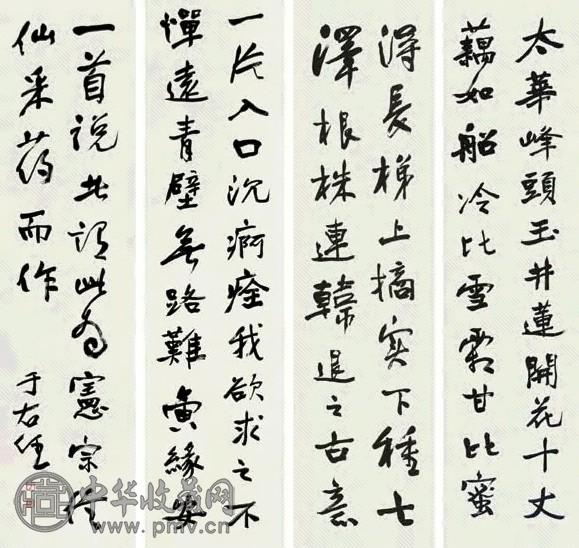 太華峰頭玉井蓮開花十丈
藕如船冷比雪霜甘比蜜
得長梯上摘實下種七
澤根株連韓退之古意
一片入口沉痾痊我欲求之不
憚遠青壁無路難夤緣安
一首說者謂此為憲宗信
仙采药而作
于右任
中华收藏网
www.pmv.cn